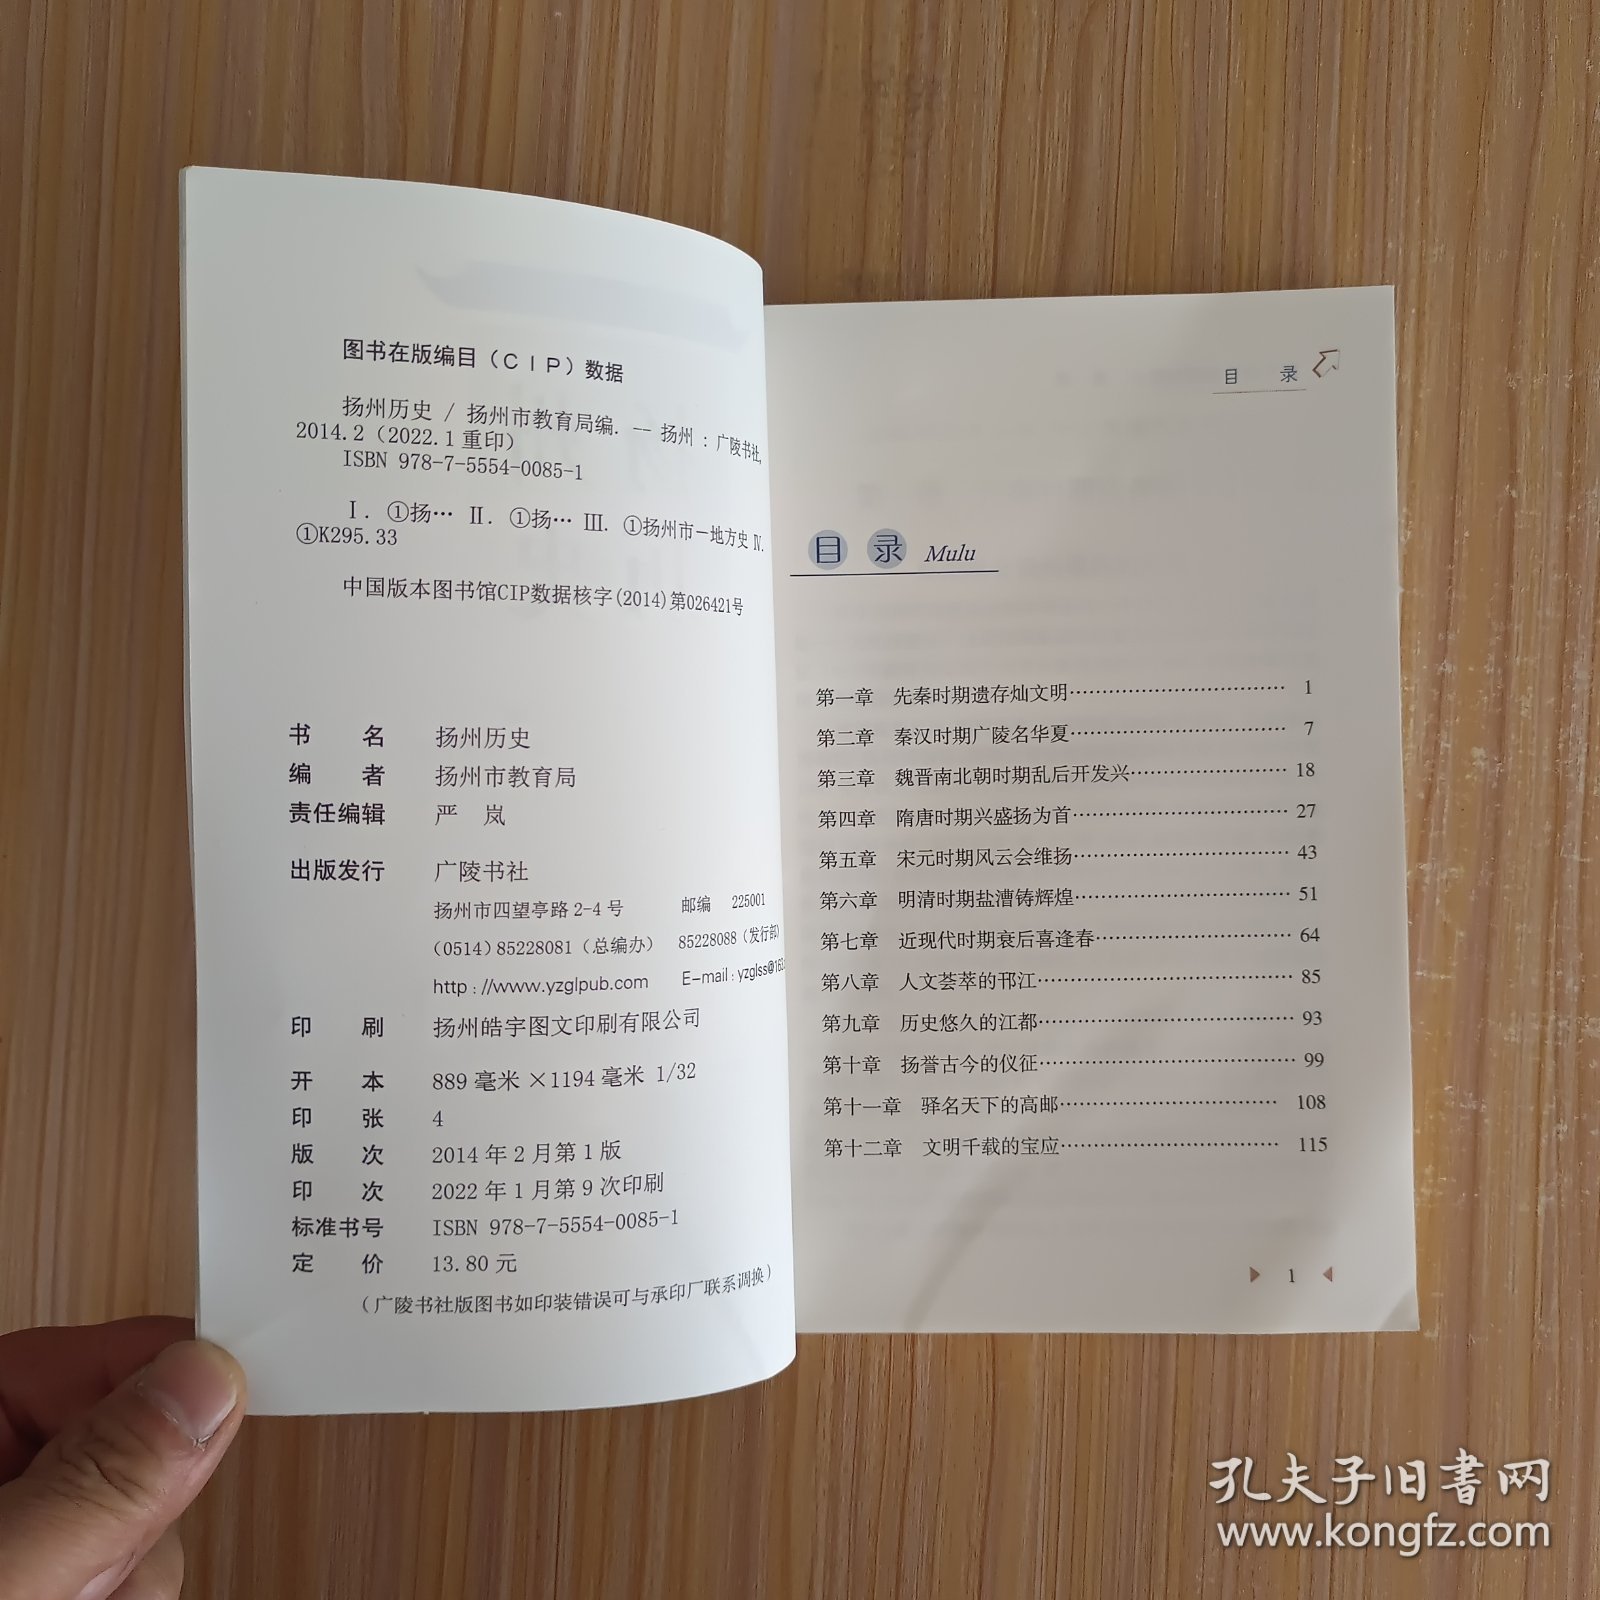 图书在版编目（CIP）数据
扬州历史 / 扬州市教育局编. -- 扬州 : 广陵书社,
2014.2（2022.1重印）
ISBN 978-7-5554-0085-1
Ⅰ. ①扬… Ⅱ. ①扬… Ⅲ. ①扬州市－地方史 Ⅳ.
①K295.33
中国版本图书馆CIP数据核字(2014)第026421号
书 名 扬州历史
编 者 扬州市教育局
责任编辑 严 岚
出版发行 广陵书社
扬州市四望亭路2-4号 邮编 225001
(0514)85228081（总编办） 85228088(发行部)
http://www.yzglpub.com E-mail:yzglss@163.
印 刷 扬州皓宇图文印刷有限公司
开 本 889毫米×1194毫米 1/32
印 张 4
版 次 2014年2月第1版
印 次 2022年1月第9次印刷
标准书号 ISBN 978-7-5554-0085-1
定 价 13.80元
（广陵书社版图书如印装错误可与承印厂联系调换）
目 录
目 录 Mulu
第一章 先秦时期遗存灿文明…………………………… 1
第二章 秦汉时期广陵名华夏…………………………… 7
第三章 魏晋南北朝时期乱后开发兴…………………… 18
第四章 隋唐时期兴盛扬为首…………………………… 27
第五章 宋元时期风云会维扬…………………………… 43
第六章 明清时期盐漕铸辉煌…………………………… 51
第七章 近现代时期衰后喜逢春………………………… 64
第八章 人文荟萃的邗江………………………………… 85
第九章 历史悠久的江都………………………………… 93
第十章 扬誉古今的仪征………………………………… 99
第十一章 驿名天下的高邮……………………………… 108
第十二章 文明千载的宝应……………………………… 115
1
孔夫子旧书网
www.kongfz.com